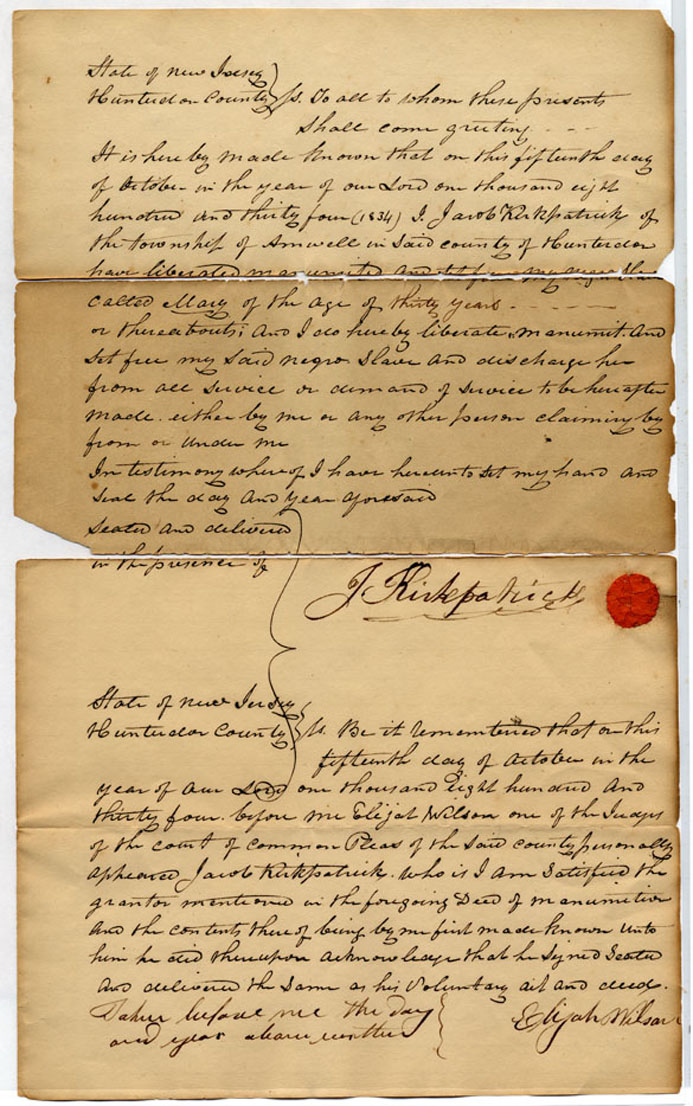 State of New Jersey
Hunterdon County } ss. To all to whom these presents
shall come greeting - - -
It is hereby made known that on this fifteenth day
of October in the year of our Lord one thousand eight
hundred and thirty four (1834) I. Jacob Kirkpatrick of
the township of Amwell in said county of Hunterdon
have liberated manumited and set free my negro slave
called Mary of the age of thirty years - - - - -
or thereabouts; And I do hereby liberate, manumit And
set free my said negro slave And discharge her
from all service or demand of service to be hereafter
made. either by me or any other person claiming by
from or under me
In testimony whereof I have hereunto set my hand and
seal the day and year aforesaid
Sealed and delivered
in the presence of
J Kirkpatrick
State of New Jersey
Hunterdon County } ss. Be it remembered that on this
fifteenth day of October in the
year of our Lord one thousand Eight hundred And
thirty four. before me Elijah Wilson one of the Judges
of the court of common Pleas of the said county personally
appeared Jacob Kirkpatrick. who is I am satisfied the
grantor mentioned in the foregoing Deed of manumition
And the contents thereof being by me first made known unto
him he did thereupon acknowledge that he signed Sealed
And delivered the same as his voluntary act and deed.
Taken before me the day
and year above written } Elijah Wilson